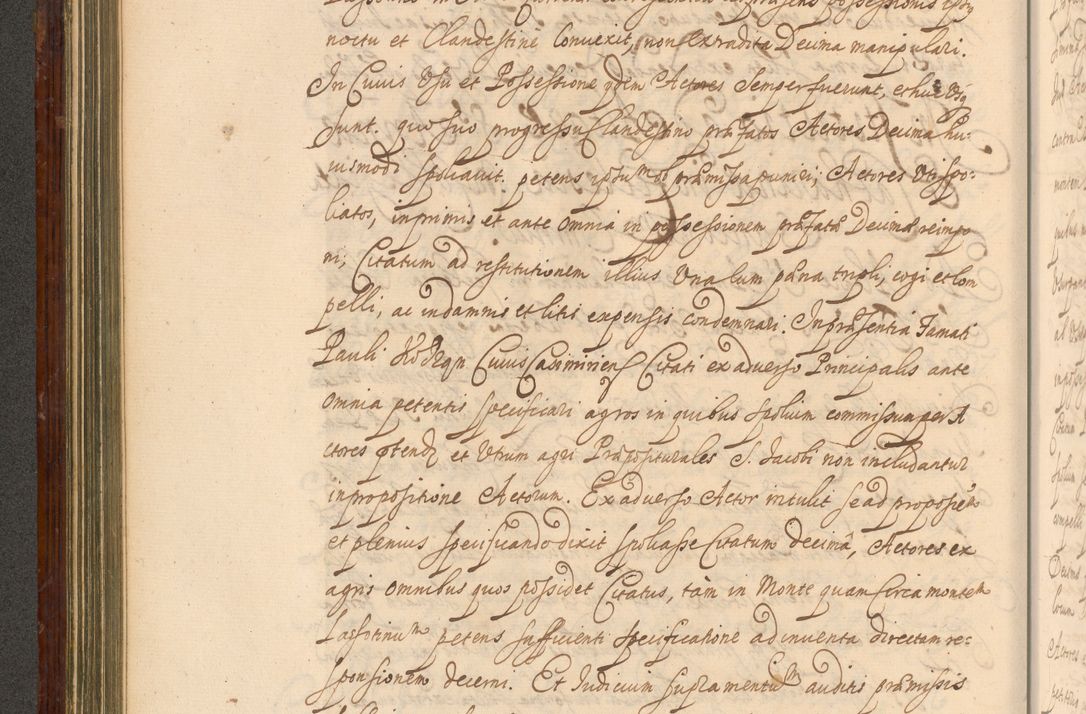 noctu et Clandestine Convexit, non extradita Decima manipulari.
In Cuius Usu et Possessione qdem Actores Semper fuerunt, et huc Usq
Sunt. quo suo progressu Clandestino præfatos Actores Decima hu-
iusmodi spoliavit. petens præmissa puniri, Actores Uti spo-
liatos, inprimis et ante omnia in possessionem præfatæ Decimæ reimpo
ni, Citatum ad restitutionem illius Una cum pæna tripli, cogi et Com
pelli, ac in damnis et litis expensis condemnari. In præsentia Famati
Pauli Civis Casimirien Citati ex adverso Principalis ante
omnia petentis specificari agros in quibus spolium commissum per A
ctores ptend et Utrum agri Præpositurales S. Jacobi non includantur
in propositione Actorum. Ex adverso Actor intulit se ad proposita
et plenius specificando dixit spoliasse Citatum decimâ, Actores ex
agris omnibus quos possidet Citatus, tàm in Monte quam Circa montem
Lassotinum petens sufficienti specificatione adinventa directam re-
sponsionem decerni. Et Judicium supramentum auditis præmissis